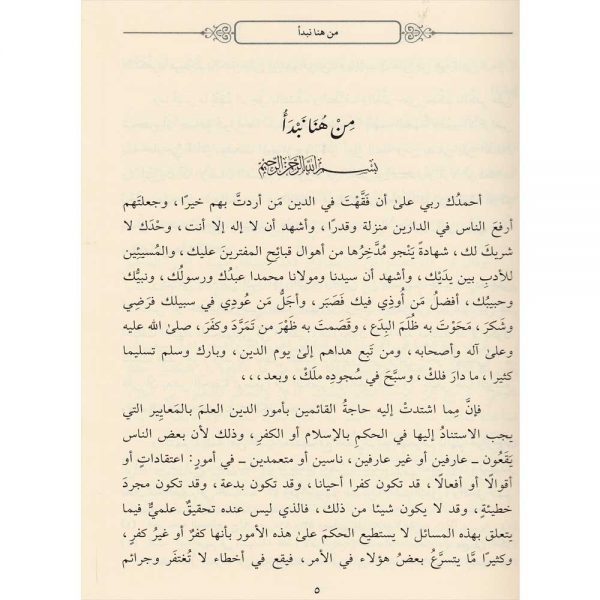 من هنا نبدأ
مِنْ هُنَا نَبْدَأُ
بسم الله الرحمن الرحيم
أحمدُك ربي علىٰ أن فَقَّهْتَ في الدين مَن أردتَّ بهم خيرًا، وجعلتَهم
أرفعَ الناس في الدارين منزلة وقدرًا، وأشهد أن لا إله إلا أنت، وحْدَك لا
شريكَ لك، شهادةً يَنْجو مُدَّخِرُها من أهوال قبائحِ المفترينَ عليك، والمُسيئِين
للأدبِ بين يدَيْك، وأشهد أن سيدنا ومولانا محمدا عبدُك ورسولُك، ونبيُّك
وحبيبُك، أفضلُ مَن أُوذِي فيك فَصَبَر، وأجلُّ مَن عُودِي في سبيلك فرَضِي
وشَكَرَ، مَحَوْتَ به ظُلَمَ البِدَع، وقصَمتَ به ظَهْرَ من تَمَرَّدَ وكفَرَ، صلىٰ الله عليه
وعلىٰ آله وأصحابه، ومن تَبِع هداهم إلىٰ يوم الدين، وبارك وسلم تسليما
كثيرا، ما دارَ فلكْ، وسبَّحَ في سُجودِه ملَكْ، وبعد،،،
فإنَّ مِما اشتدتْ إليه حاجةُ القائمين بأمور الدين العلمَ بالمَعايير التي
يجب الاستنادُ إليها في الحكمِ بالإسلام أو الكفرِ، وذلك لأن بعض الناس
يَقَعُون ـ عارفين أو غير عارفين، ناسين أو متعمدين ـ في أمورٍ: اعتقاداتٍ أو
أقوالًا أو أفعالًا، قد تكون كفرا أحيانا، وقد تكون بدعة، وقد تكون مجردَ
خطيئةٍ، وقد لا يكون شيئا من ذلك، فالذي ليس عنده تحقيقٌ علميٌّ فيما
يتعلق بهذه المسائل لا يستطيع الحكمَ علىٰ هذه الأمور بأنها كفرٌ أو غيرُ كفرٍ،
وكثيرًا مَّا يتسرَّعُ بعضُ هؤلاء في الأمر، فيقع في أخطاء لا تُغتفَر وجرائم
٥